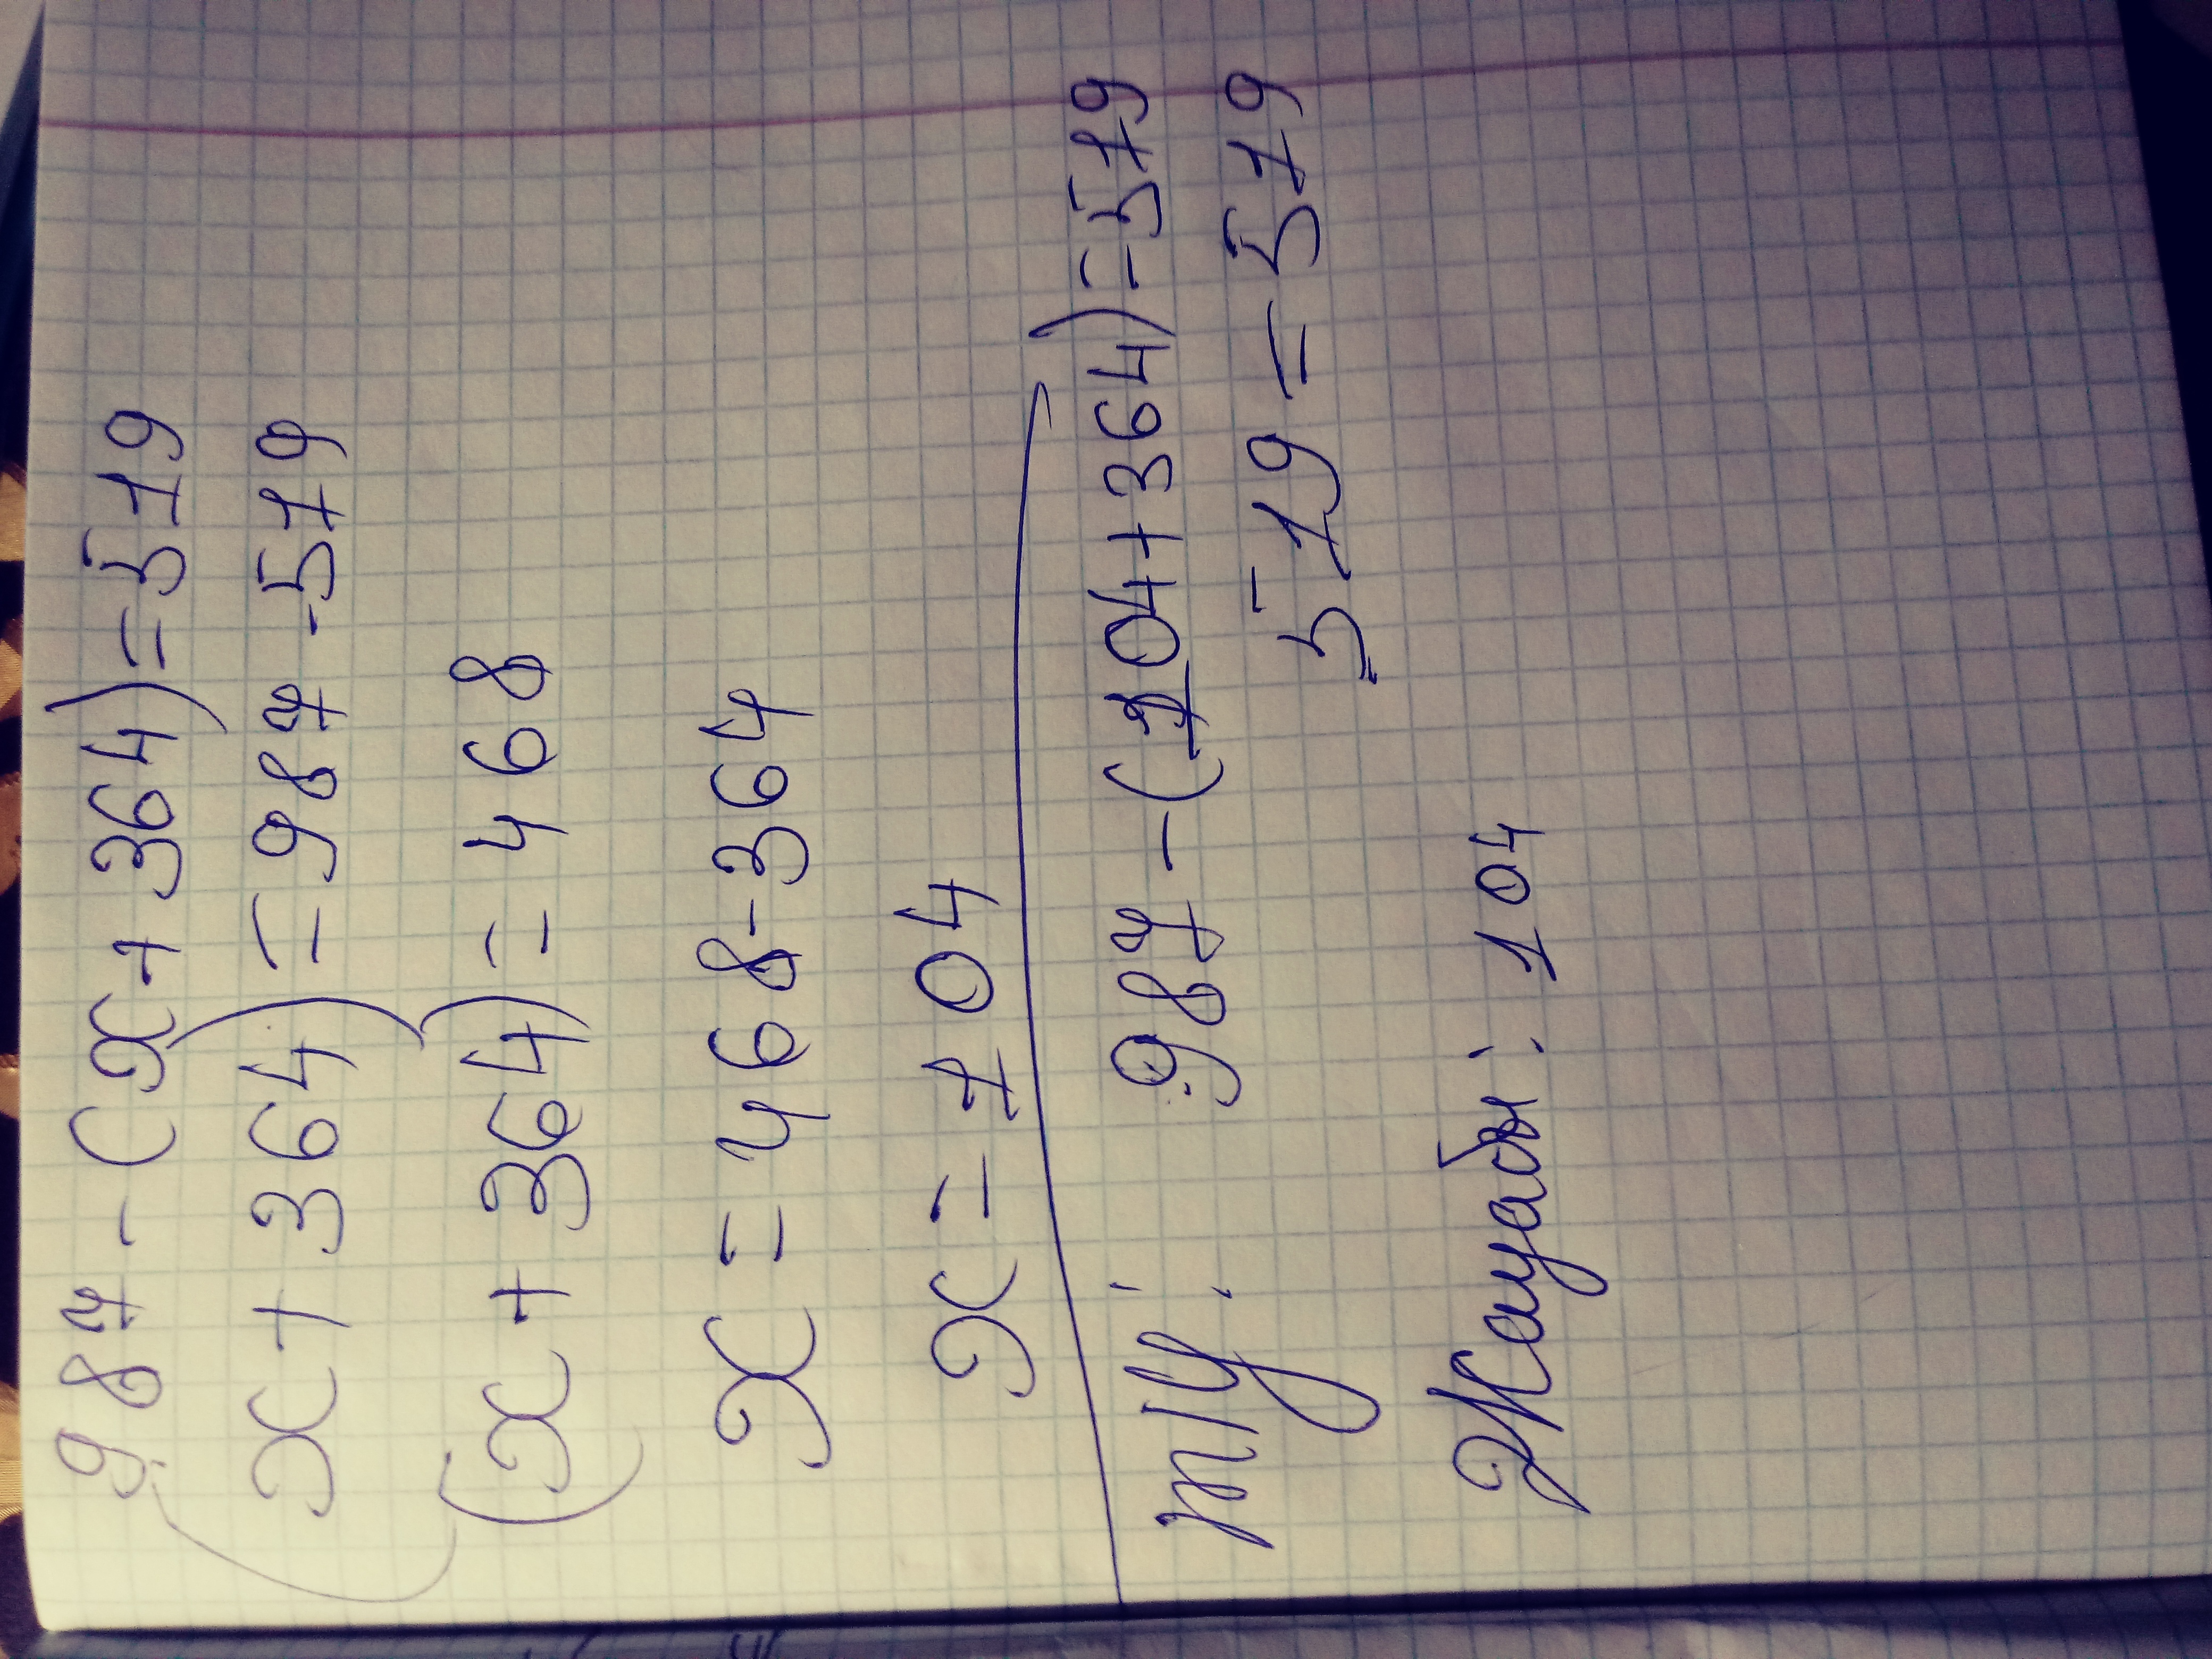 987-(x+364)=519
(x+364)=987-519
(x+364)=468
x=468-364
x=104
т/у: 987-(104+364)=519
519=519
Жауабы: 104